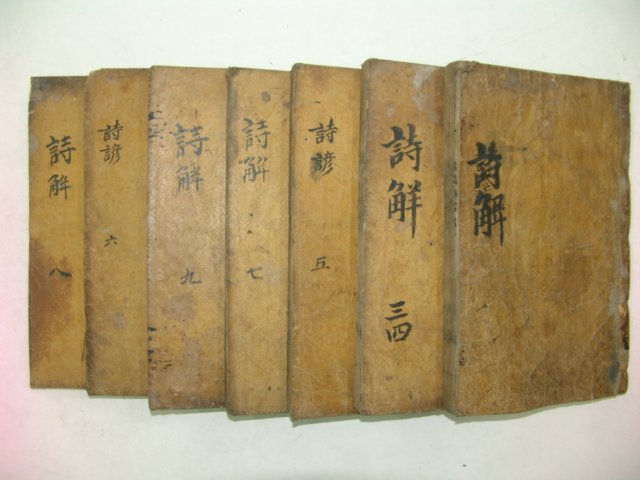 詩解
詩解
三四
詩諺
五
詩解
七
詩解
九
詩諺
六
詩解
八